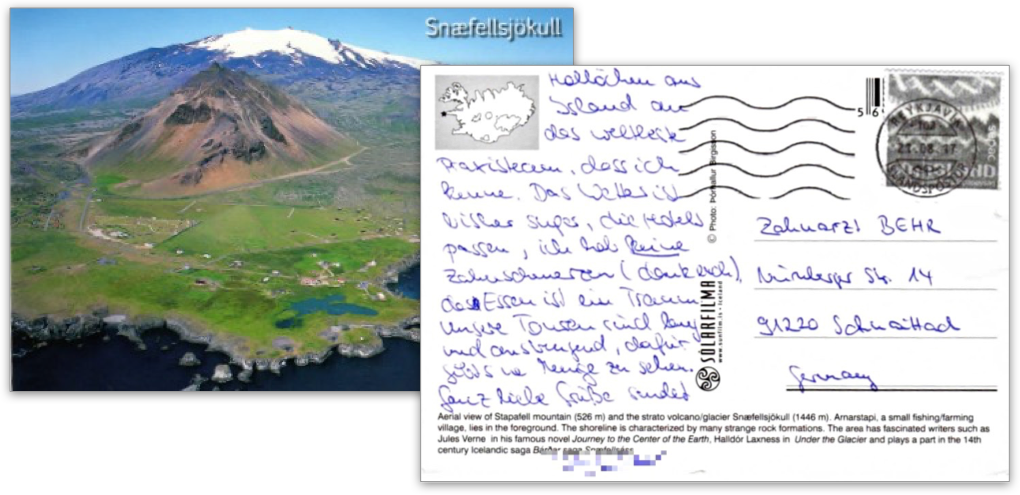 Snæfellsjökull
Hallöchen aus
Island an
das weltbeste
Praxisteam, dass ich
kenne. Das Wetter ist
bisher super, die Hotels
passen, ich hab keine
Zahnschmerzen (dank euch),
das Essen ist ein Traum
unsere Touren sind lang
und anstrengend, dafür
gibts ne Menge zu sehen.
Ganz liebe Grüße sendet
56
© Photo: Bergsson
SOLARFILMA
www.sunfilm.is • Iceland
Zahnarzt BEHR
Nürnberger Str. 14
91220 Schnaittach
Germany
Aerial view of Stapafell mountain (526 m) and the strato volcano/glacier Snæfellsjökull (1446 m). Arnarstapi, a small fishing/farming
village, lies in the foreground. The shoreline is characterized by many strange rock formations. The area has fascinated writers such as
Jules Verne in his famous novel Journey to the Center of the Earth, Halldór Laxness in Under the Glacier and plays a part in the 14th
century Icelandic saga Bárðar saga Snæfellsáss.